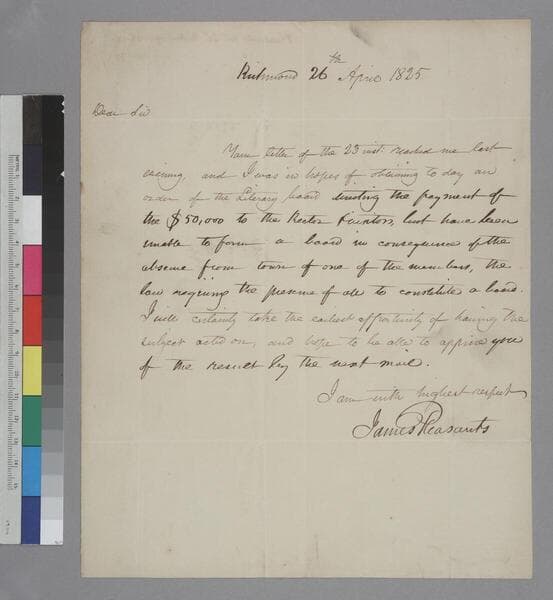 Richmond 26th April 1825
Dear Sir
Your letter of the 23 inst. reached me last
evening, and I was in hopes of obtaining to day an
order of the Literary board directing the payment of
the $50,000 to the Rector &
visitors, but have been
unable to form a board in consequence of the
absence from town of one of the members, the
law requiring the presence of all to constitute a board.
I will certainly take the earliest opportunity of having the
subject acted on, and hope to be able to apprise you
of the result by the next mail.
I am with highest respect
James Pleasants